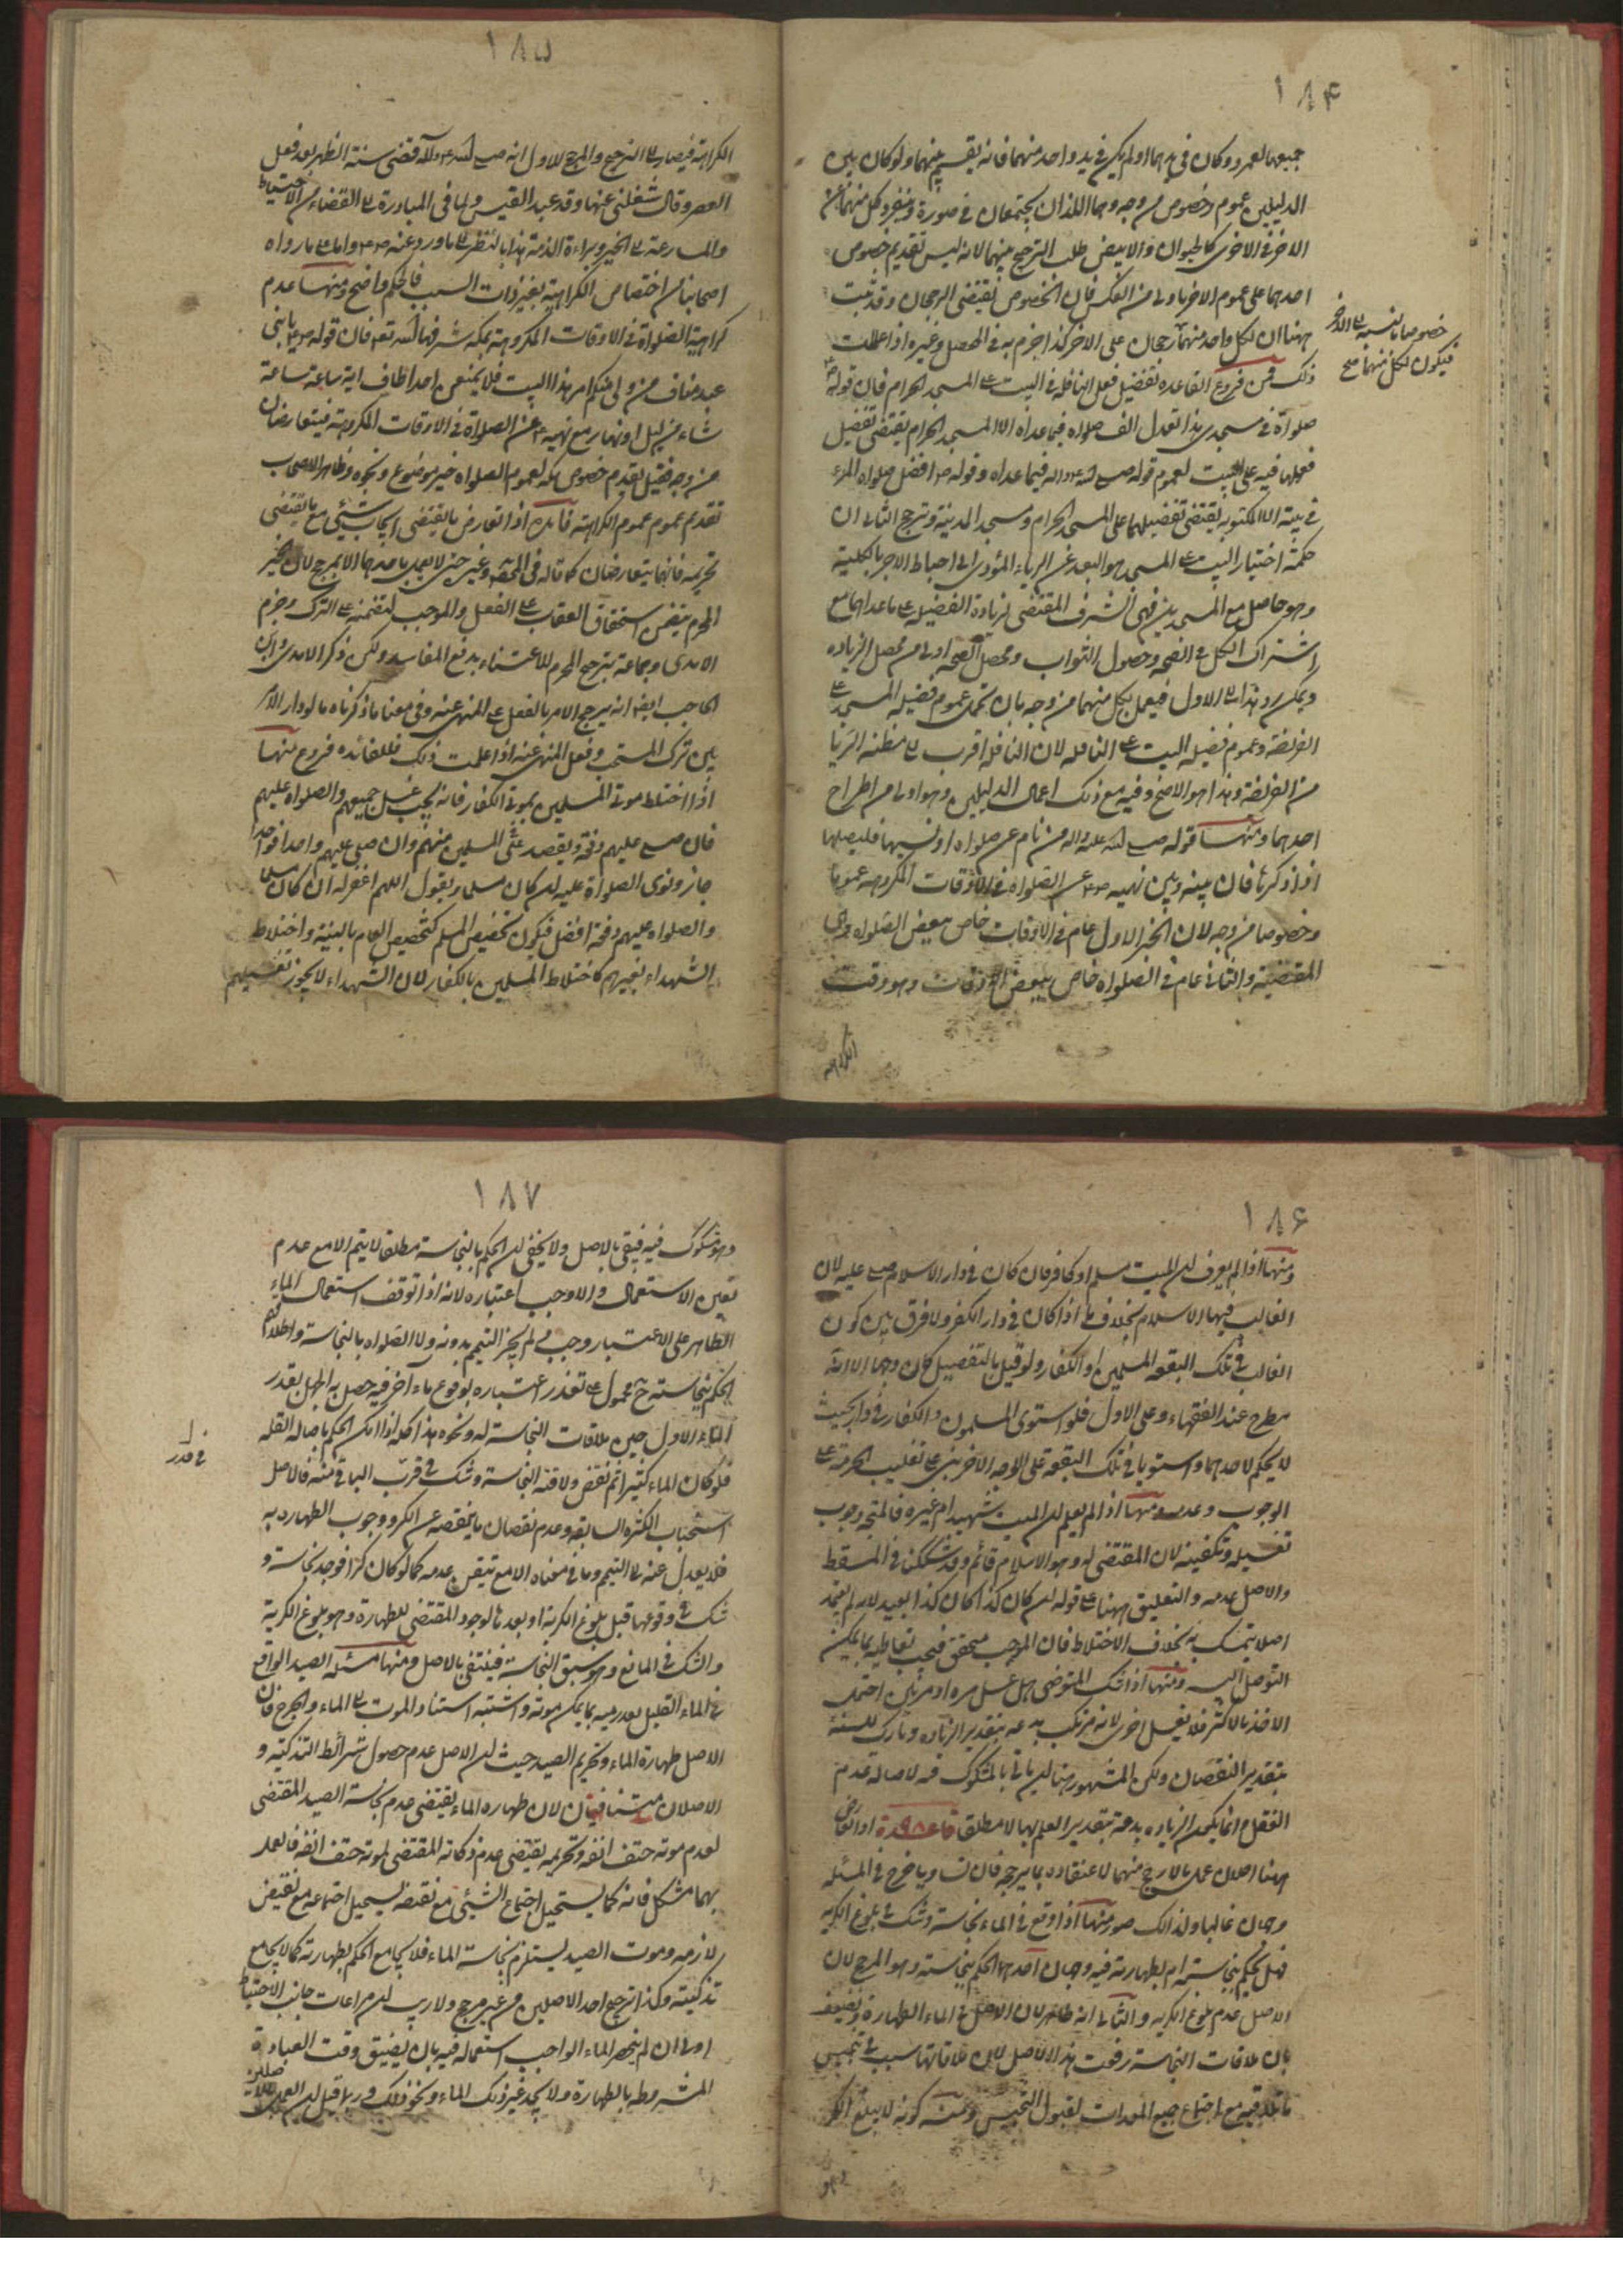 ١٨۴
جميعها لعمرو وكان في يدهما او لم يكن في يد واحد منهما فانه يقسم بينهما ولو كان بين
الدليلين عموم وخصوص من وجه وهما اللذان يجتمعان في صورة وينفرد كل منهما عن
الاخر في الاخرى كالحيوان والابيض طلب الترجيح بينهما لانه ليس تقديم خصوص
احدهما على عموم الاخر باولى من العكس فان الخصوص يقتضي الرجحان وقد ثبت
ههنا ان لكل واحد منهما رجحان على الاخر كذا جزم به في المحصول وغيره اذا علمت
خصوصا بالنسبة الى الاخر
فيكون لكل منهما صح
ذلك فمن فروع القاعده تفضيل فعل النافلة في البيت على المسجد الحرام فان قوله
صلواة في مسجدي هذا تعدل الف صلواه فيما عداه الا المسجد الحرام يقتضي تفضيل
فعلها فيه على البيت لعموم قوله فيما عداه وقوله افضل صلواة المرء
في بيته الا المكتوبه يقتضي تفضيلها على المسجد الحرام ومسجد المدينة ويرجح الثاني ان
حكمة اختيار البيت على المسجد هو البعد عن الرياء المؤدي الى احباط الاجر بالكلية
وهو حاصل مع المسجدين فهي الشرف المقتضي لزيادة الفضيلة على ما عداهما مع
اشتراك الكل في الصحة وحصول الثواب ومحصل الصحة اولى من محصل الزياده
ويمكن رد هذا الى الاول فيعمل بكل منهما من وجه بان تحمل عموم فضيلة المسجد على
الفريضة وعموم فضيلة البيت على النافله لان النافله اقرب الى مظنة الريا
من الفريضة وهذا هو الاصح وفيه مع ذلك اعمال الدليلين وهو اولى من اطراح
احدهما ومنها قوله صلى الله عليه واله من نام عن صلواه او نسيها فليصلها
اذا ذكرها فان بينه وبين نهيه عن الصلواه في الاوقات المكروهه عموما
وخصوصا من وجه لان الخبر الاول عام في الاوقات خاص ببعض الصلواه وهي
المقضية والثاني عام في الصلواه خاص ببعض الاوقات وهو وقت
الكراهه
١٨۵
الكراهة فيصار الى الترجيح والمرجح للاول انه صلى الله عليه وآله قضى سنة الظهر بعد فعل
العصر وقال شغلني عنها وفد عبد القيس ولما في المبادرة الى القضاء من الاحتياط
والمسارعة الى الخير وبراءة الذمة هذا بالنظر الى ما ورد عنه واما على ما رواه
اصحابنا من اختصاص الكراهية بغير ذات السبب فالحكم واضح ومنها عدم
كراهية الصلواة في الاوقات المكروهة بمكه شرفها الله تعالى فان قوله يا بني
عبد مناف من ولي منكم امر هذا البيت فلا يمنعن احدا طاف اية ساعة
شاء من ليل او نهار مع نهيه عن الصلواة في الاوقات المكروهة فيتعارضان
من وجه فقيل يقدم خصوص مكه لعموم الصلواه خير موضوع ونحوه وظاهر الاصحاب
تقديم عموم الكراهة فائدة اذا تعارض ما يقتضي ايجاب شيئ مع ما يقتضي
تحريمه فانهما يتعارضان كما قاله في المحصول وغيره حتى لا يعمل باحدهما الا بمرجح لان الخبر
المحرم يتضمن استحقاق العقاب على الفعل والموجب يتضمنه على الترك وجزم
الامدي وجماعة بترجيح المحرم للاعتناء بدفع المفاسد ولكن ذكر الامدي وابن
الحاجب ايضا انه يرجح الامر بالفعل على المنهي عنه وفي معنى ما ذكرناه ما لو دار الامر
بين ترك المستحب وفعل المنهي عنه اذا علمت ذلك فللفائده فروع منها
اذا اختلط موتى المسلمين بموتى الكفار فانه يجب غسل جميعهم والصلواة عليهم
فان صلى عليهم دفعة ويقصد المسلمين منهم وان صلى عليهم واحدا فواحدا
جاز ونوى الصلواة عليه ان كان مسلما ويقول اللهم اغفر له ان كان مسلما
والصلواه عليهم دفعة افضل فيكون تخصيص المسلم كتخصيص العام بالنية واختلاط
الشهداء بغيرهم كاختلاط المسلمين بالكفار لان الشهداء لا يجوز تغسيلهم
١٨۶
ومنها اذا لم يعرف ان الميت مسلم او كافر فان كان في دار الاسلام صلى عليه لان
الغالب فيها الاسلام بخلاف ما اذا كان في دار الكفر ولا فرق بين كون
الغالب في تلك البقعه المسلمين او الكفار ولو قيل بالتفصيل كان وجها الا انه
مطرح عند الفقهاء وعلى الاول فلو استوى المسلمون والكفار في دار بحيث
لا يحكم لاحدهما واستويا في تلك البقعه على الوجه الاخر بني على تغليب الحرمة على
الوجوب وعدمه ومنها اذا لم يعلم ان الميت شهيد ام غيره فالمتجه وجوب
تغسيله وتكفينه لان المقتضي له وهو الاسلام قائم وقد شككنا في المسقط
والاصل عدمه والتعليق ههنا على قوله ان كان كذا كان كذا بعيد لانه لم يعتمد
اصلا يتمسك به بخلاف الاختلاط فان الموجب متحقق فيجب تعاطيه بما يمكن
التوصل اليه ومنها اذا شك المتوضي هل غسل مره او مرتين احتمل
الاخذ بالاكثر فلا يغسل اخرى لانه مرتكب بدعه بتقدير الزياده وتارك للسنة
بتقدير النقصان ولكن المشهور هنا ان ياتي بالمشكوك فيه لاصالة عدم
الفعل وانما يكون الزياده بدعة بتقدير العلم بها لا مطلقا قاعدة ٩٨ اذا تعارض
ههنا اصلان عمل بالارجح منهما لاعتضاده بما يرجحه فان تساويا خرج في المسئله
وجهان غالبا ولذلك صور منها اذا وقع في الماء نجاسة وشك في بلوغ الكرية
فهل يحكم بنجاسته ام بطهارته فيه وجهان احدهما الحكم بنجاسته وهو المرجح لان
الاصل عدم بلوغ الكريه والثاني انه طاهر لان الاصل في الماء الطهارة ويضعف
بان ملاقات النجاسة رفعت هذا الاصل لان ملاقاتها سبب في تنجيس
ما تلاقيه مع اجتماع جميع المعدات لقبول التنجيس ومنه كونه لا يبلغ الكر
وهو
١٨٧
وهو مشكوك فيه فينفى بالاصل ولا يخفى ان الحكم بالنجاسة مطلقا لا يتم الا مع عدم
تعين الاستعمال والا وجب اعتباره لانه اذا توقف استعمال الماء
الطاهر على الاعتبار وجب ثم لم يجز التيمم بدونه ولا الصلواه بالنجاسة واطلاقهم
الحكم بنجاسته ح محمول على تعذر اعتباره بوقوع ماء اخر فيه حصل به الجهل بقدر
الماء الاول حين ملاقات النجاسة له ونحوه هذا كله اذا امكن الحكم باصالة القله
فلو كان الماء كثيرا ثم نقص ولاقته النجاسة وشك في قدر الباقي منه فالاصل
في قدر
استصحاب الكثرة السابقه وعدم نقصان ما ينقصه عن الكر ووجوب الطهاره به
فلا يعدل عنه الى التيمم وما في معناه الا مع تيقن عدمه كما لو كان كرا فوجد نجاسة و
شك في وقوعها قبل بلوغ الكرية او بعدها لوجود المقتضي للطهارة وهو بلوغ الكرية
والشك في المانع وهو سبق النجاسة فينتفي بالاصل ومنها مسئلة الصيد الواقع
في الماء القليل بعد رميه بما يمكن موته واشتبه استناد الموت الى الماء والجرح فان
الاصل طهارة الماء وتحريم الصيد حيث ان الاصل عدم حصول شرائط التذكية و
الاصلان متنافيان لان طهاره الماء يقتضي عدم نجاسة الصيد المقتضي
لعدم موته حتف انفه وتحريمه يقتضي عدم ذكاته المقتضي لموته حتف انفه فالعمل
بهما مشكل فانه كما يستحيل اجتماع الشيئ مع نقيضه يستحيل اجتماعه مع نقيض
لازمه وموت الصيد يستلزم نجاسة الماء فلا يجامع الحكم بطهارته كما لا يجامع
تذكيته وكذا ترجيح احد الاصلين من غير مرجح ولا ريب ان مراعات جانب الاحتياط
اولى ان لم ينحصر الماء الواجب استعماله فيه بان يضيق وقت العبادة
المشروطه بالطهارة ولا يجد غير ذلك الماء ونحو ذلك وربما قيل ان العمل